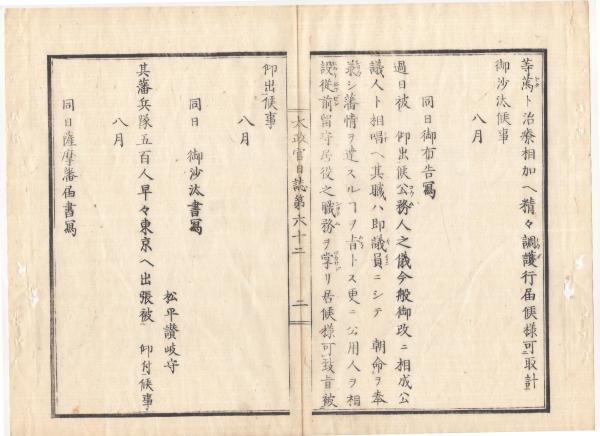 等萬ト治療相加ヘ精々調護行届候様可取計
御沙汰候事
八月
同日御布告寫
過日被 仰出候公務人之儀今般御改ニ相成公
議人ト相唱ヘ其職ハ即議員ニシテ 朝命ヲ奉
承シ藩情ヲ達スルヿヲ旨トス更ニ公用人ヲ相
設從前留守居役之職務ヲ掌リ居候様可致旨被
太政官日誌第六十二 二
仰出候事
八月
同日 御沙汰書寫
松平讃岐守
其藩兵隊五百人早々東京ヘ出張被 仰付候事
八月
同日薩摩藩届書寫